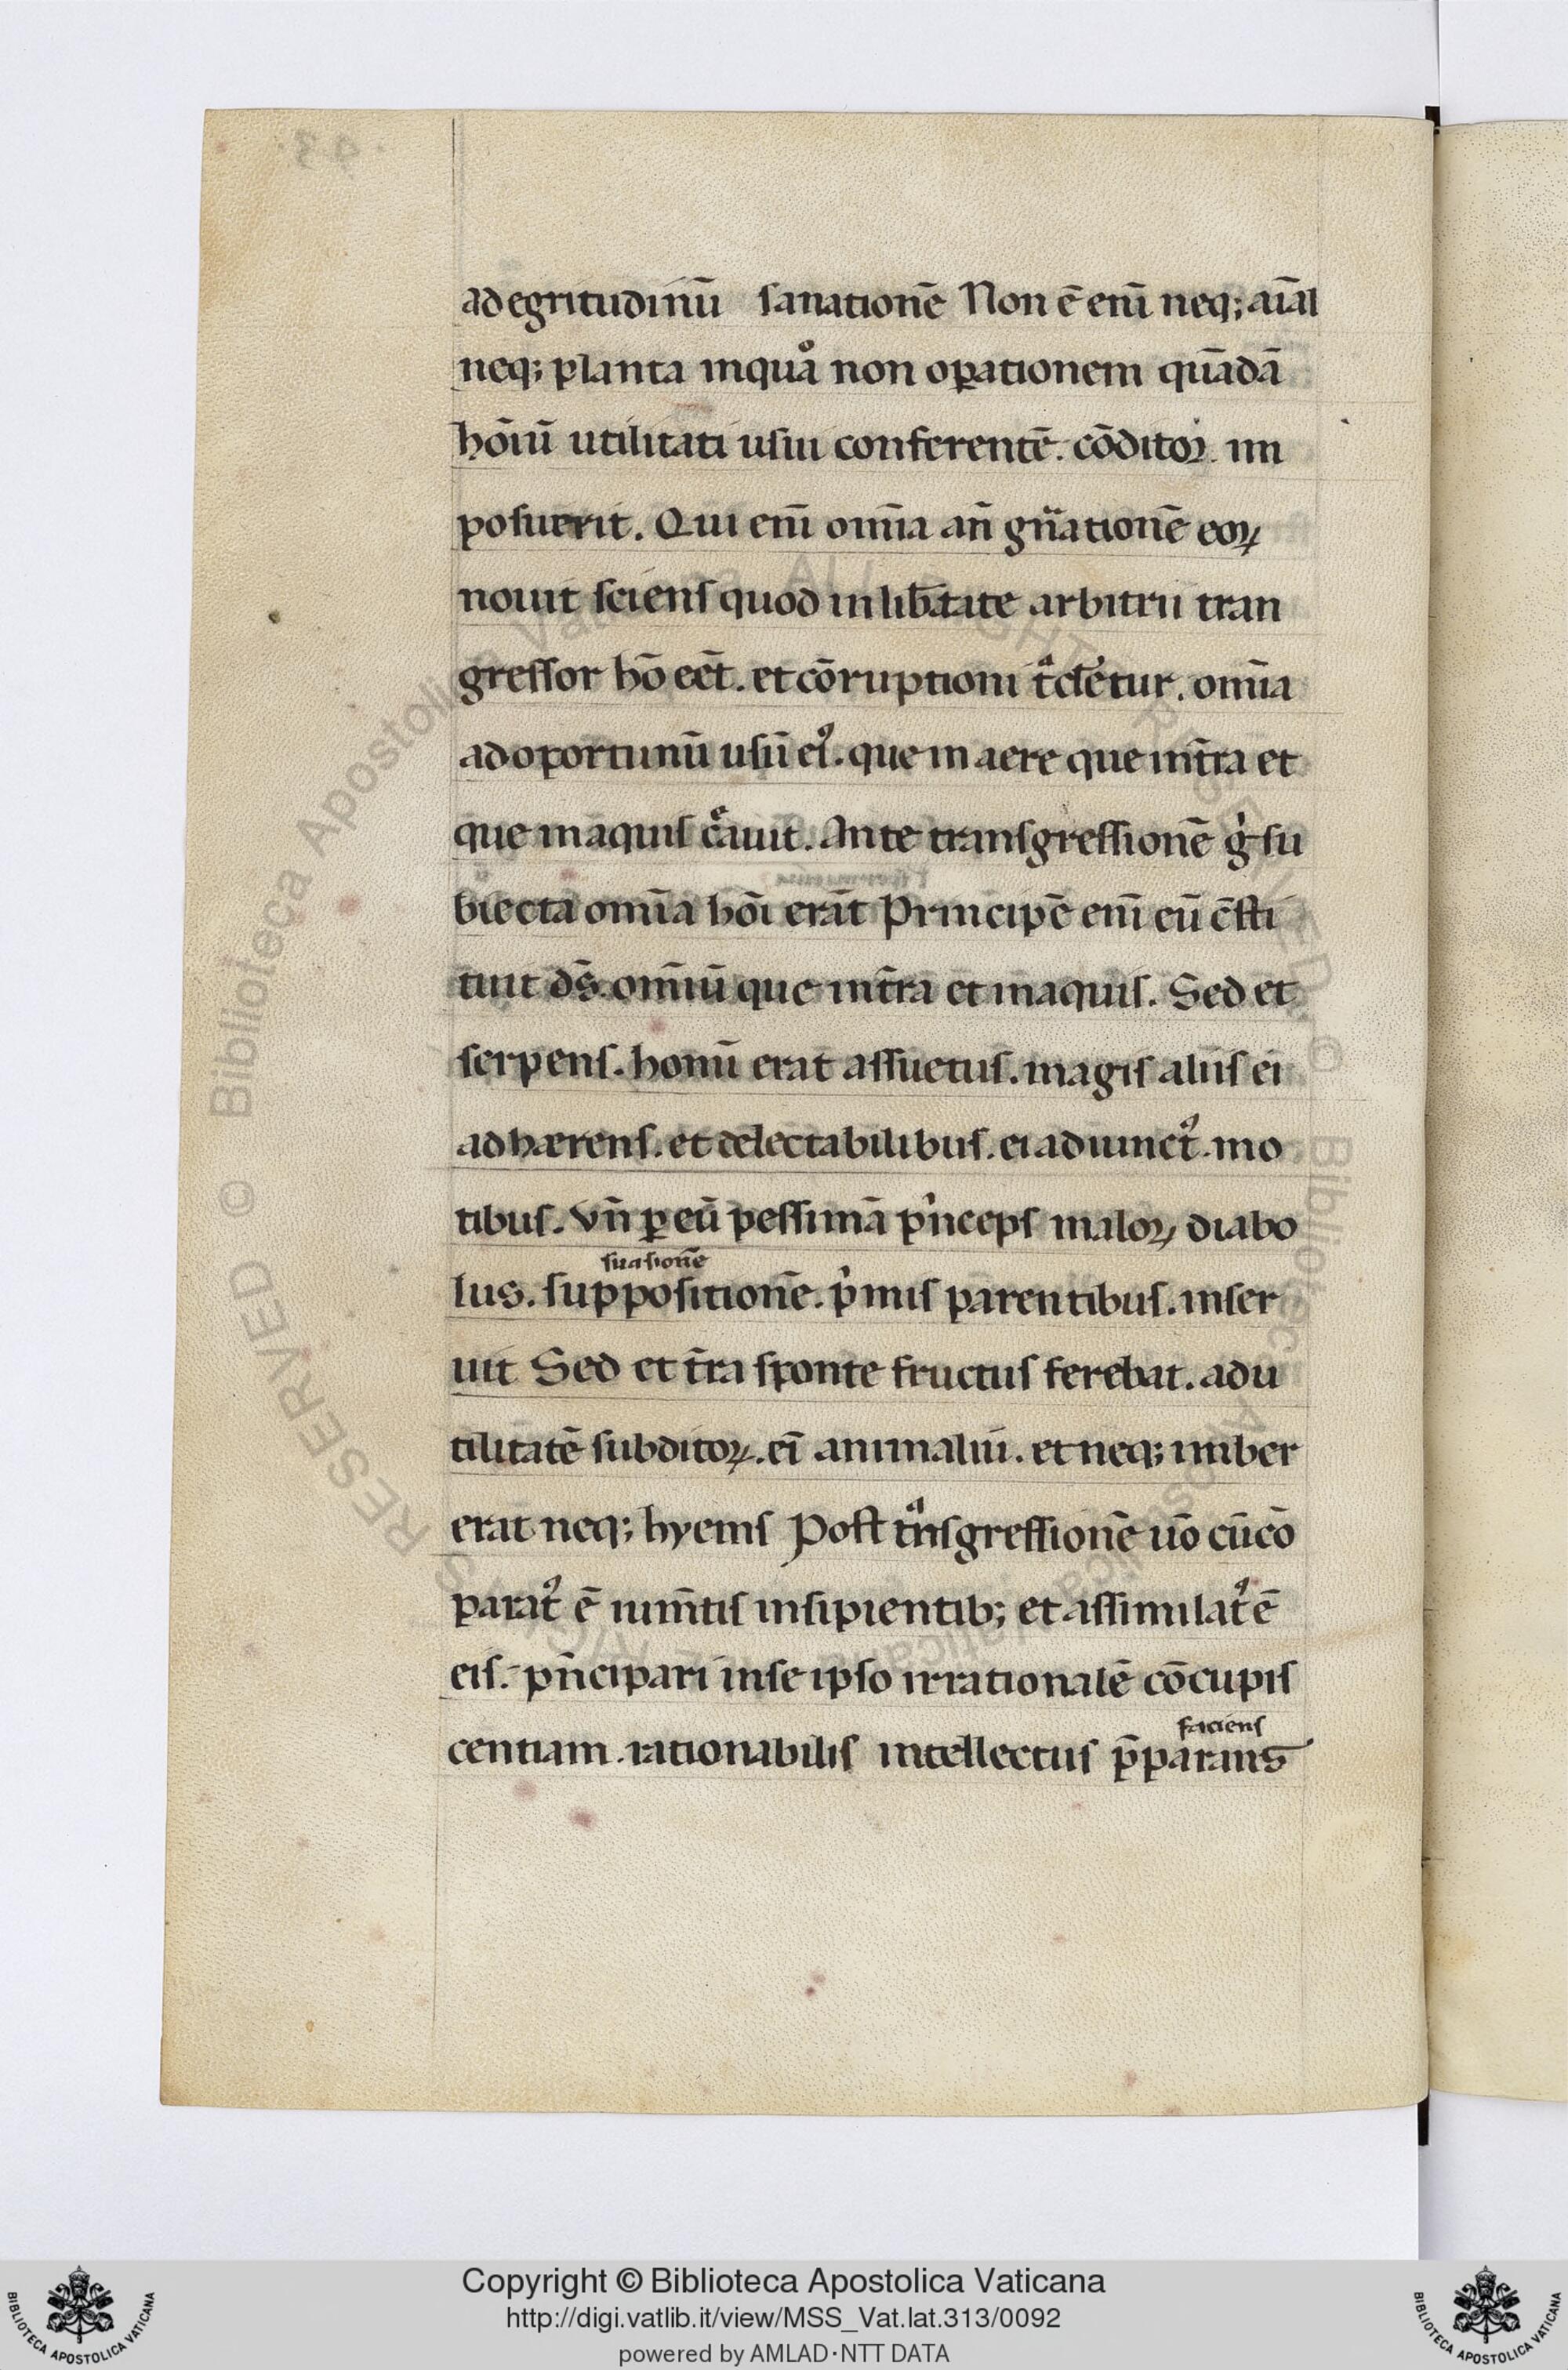 ad egritudinū sanationē Non ē enī neq; aīal
neq; planta in quа̊ non oꝑationem quādā
hōiū utilitati usui conferentē. cōditor. im
posuerit. Qui enī omīa an̄ gn̄ationē eoꝝ
nouit sciens quod in lib̄tate arbitrii tran
gressor hō eēt. et cōruptioni t̄deʳetur. omīa
ad oportunū usū eiꝰ. que in aere que in t̄ra et
que in aquis cͤauit. Ante transgressionē gͥ su
biecta omīa hōi erāt Principē enī eū c̄sti
tuit ds̄. omīiū que in t̄ra et in aquis. Sed et
serpens. homī erat assuetus. magis aliis ei
adhærens. et delectabilibus. ei adiunctꝰ. mo
tibus. vn̄ ꝑ eū pessimā pͥnceps maloꝝ diabo
suasionē
lus. suppositionē. pͥmis parentibus. inser
uit Sed et t̄ra sponte fructus ferebat. ad u
tilitatē subditoꝝ. eī animaliū. et neq; imber
erat neq; hyems Post tͣnsgressionē uō cū cō
paratꝰ ē ium̄tis insipientib; et assimilatꝰ ē
eis. pn̄cipari in se ipso irrationalē cōcupis
faciens
centiam. rationabilis intellectus p̄parans
Copyright © Biblioteca Apostolica Vaticana
http://digi.vatlib.it/view/MSS_Vat.lat.313/0092
powered by AMLAD·NTT DATA